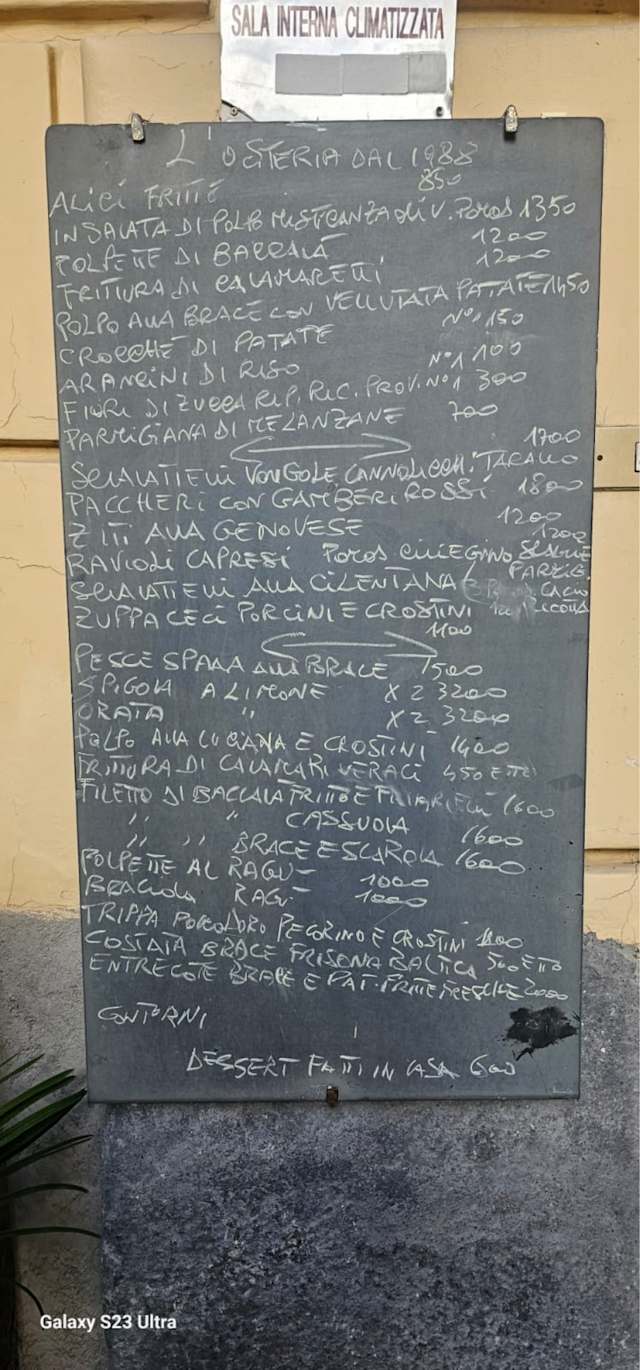 SALA INTERNA CLIMATIZZATA
L'OSTERIA DAL 1988
ALICI FRITTE 850
INSALATA DI POLPO MISTICANZA di V. Pomod 1350
POLPETTE DI BACCALÀ 1200
FRITTURA DI CALAMARETTI 1200
POLPO ALLA BRACE con VELLUTATA PATATE 1450
CROCCHÉ DI PATATE N°1 150
ARANCINI DI RISO N°1 100
FIORI DI ZUCCA RIP. RIC. PROV. N°1 300
PARMIGIANA DI MELANZANE 700
SCIALATIELLI VONGOLE, CANNOLICCHI, TARALLO 1700
PACCHERI CON GAMBERI ROSSI 1800
ZITI ALLA GENOVESE 1200
RAVIOLI CAPRESI POMOD CILIEGINO 1200
SCIALATIELLI ALLA CILENTANA PARMIG. CACIO
ZUPPA CECI PORCINI E CROSTINI 1100
PESCE SPADA ALLA BRACE 1500
SPIGOLA A LIMONE X 2 3200
ORATA " X 2 3200
POLPO ALLA LUCIANA E CROSTINI 1400
FRITTURA DI CALAMARI VERACI 450 ETTO
FILETTO DI BACCALA FRITTO E FRIARIELLI 1600
" " CASSUOLA 1600
" " BRACE E SCAROLA 1600
POLPETTE AL RAGU- 1000
BRACIOLA RAGU- 1000
TRIPPA POMODORO PECORINO E CROSTINI 1200
COSTATA BRACE FRISONA BALTICA 500 ETTO
ENTRECOTE BRACE E PAT. FRITTE FRESCHE 2000
CONTORNI
DESSERT FATTI IN CASA 600
Galaxy S23 Ultra